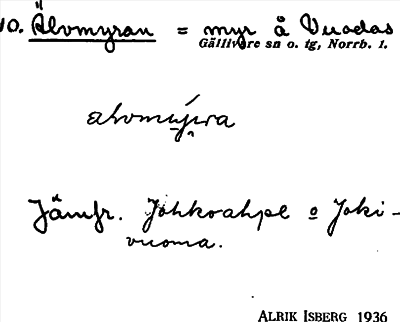 10. Älvomyran = myr å Vuodas
Gällivare sn o. tg, Norrb. l.
Jämfr. Johkoahpe o Joki-
vuoma.
ALRIK ISBERG 1936